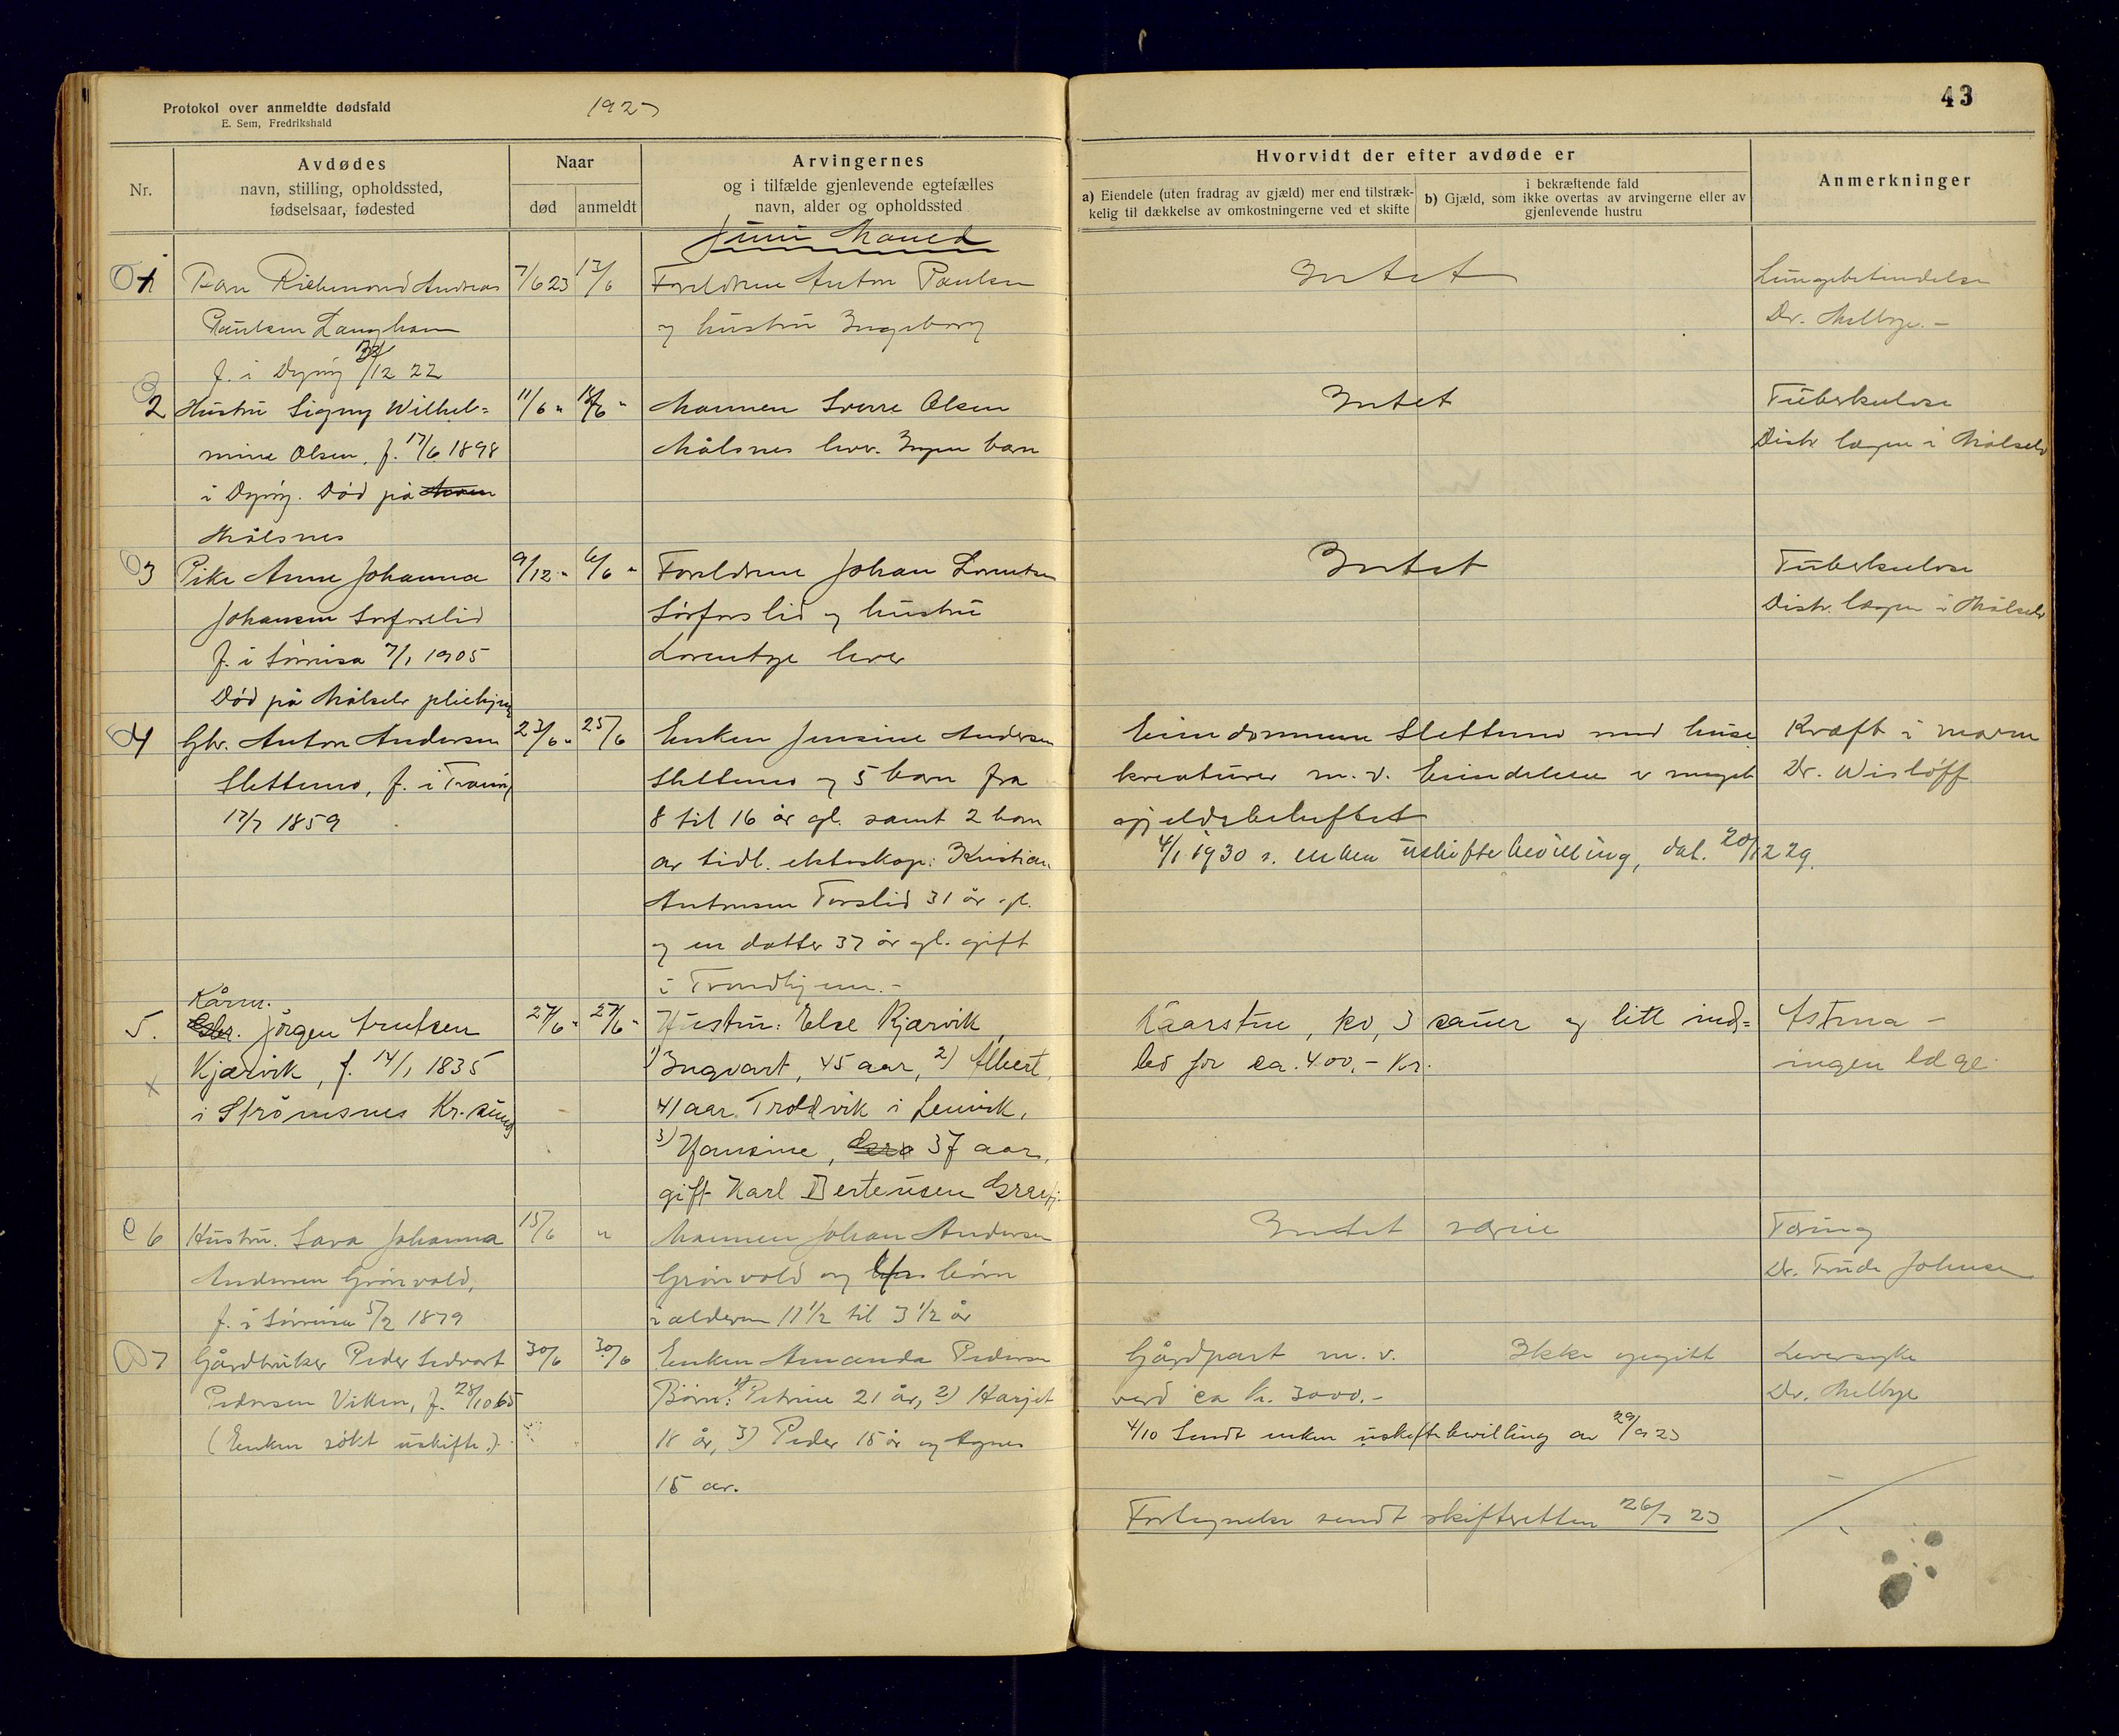 Protokol over anmeldte dødsfald
E. Sem, Fredrikshald
1923
43
Nr.
Avdødes
navn, stilling, opholdssted,
fødselsaar, fødested
Naar
død
anmeldt
Arvingernes
og i tilfælde gjenlevende egtefælles
navn, alder og opholdssted
Hvorvidt der efter avdøde er
a) Eiendele (uten fradrag av gjæld) mer end tilstræk-
kelig til dækkelse av omkostningerne ved et skifte
i bekræftende fald
b) Gjæld, som ikke overtas av arvingerne eller av
gjenlevende hustru
Anmerkninger
Juni Maaned
1 Barn Richmond Andreas 7/6 23 13/6 Foreldrene Anton Paulsen Intet Lungebetendelse
Paulsen Langhavn og hustru Ingeborg Dr. Melbye.-
f. i Dyrøy /12 22
2 Hustru Signy Wilhel= 11/6 " /6 " Mannen Sverre Olsen Intet Tuberkulose
mine Olsen, f. 17/6 1898 Målsnes lever. Ingen barn Distr. lægen i Målselv
i Dyrøy. Død på
Målsnes
3 Pike Anne Johanna 9/12 " 6/6 " Foreldrene Johan Lorentsen Intet Tuberkulose
Johansen Sørforslid Sørforslid og hustru Distr. lægen i Målselv
f. i Sørreisa 7/1 1905 Lorentze lever
Død på Målselv pleiehjem
4 Gbr. Anton Andersen 23/6 " 25/6 Enken Jensine Andersen Eiendommene Slettmo med huse Kræft i maven
Slettmo, f. i Tranøy Slettmo og 5 barn fra kreaturer m. v. Eiendelene er meget Dr. Wisløff
17/7 1859 8 til 16 år gl. samt 2 barn gjeldsbeheftet
av tidl. ekteskap: Kristian 4/1 1930 s. enken uskiftebevilling, dat. 20/12 29.
Antonsen Forslid 31 år gl.
og en datter 37 år gl. gift
i Trondhjem.-
5. Kårm. Gbr. Jørgen Knutsen 27/6 " 27/6 " Hustru: Else Kjærvik, Kaarstue, ko, 3 sauer og litt ind= Astma -
Kjærvik, f. 14/1 1835 1) Ingvart, 45 aar, 2) Albert, bo for ca. 400,- Kr. ingen læge.
x i Strømsnes Kr.sund 41 aar Troldvik i Lenvik,
3) Hansine, 37 aar,
gift Karl Berteusen
6 Hustru. Sara Johanna 15/6 " Mannen Johan Andersen Intet særeie Tæring
Andersen Grønvold, Grønvold og børn Dr. Trude Johnsen
f. i Sørreisa 5/2 1879 i alderen 11 1/2 til 3 1/2 år
7 Gårdbruker Peder Sedvart 30/6 30/6 Enken Amanda Pedersen Gårdpart m. v. Ikke opgitt Leversyke
Pedersen Vikken, f. 28/10 65 Børn: 1) Petrine 21 år, 2) Harjet verd ca kr. 3000.- Dr. Melbye
(Enken søkt uskifte.) 18 år, 3) Peder 15 år og Agnes 4/10 Sendt enken uskiftebevilling av 29/9 23
15 år.
Fortegnelse sendt skifteretten 26/7 23